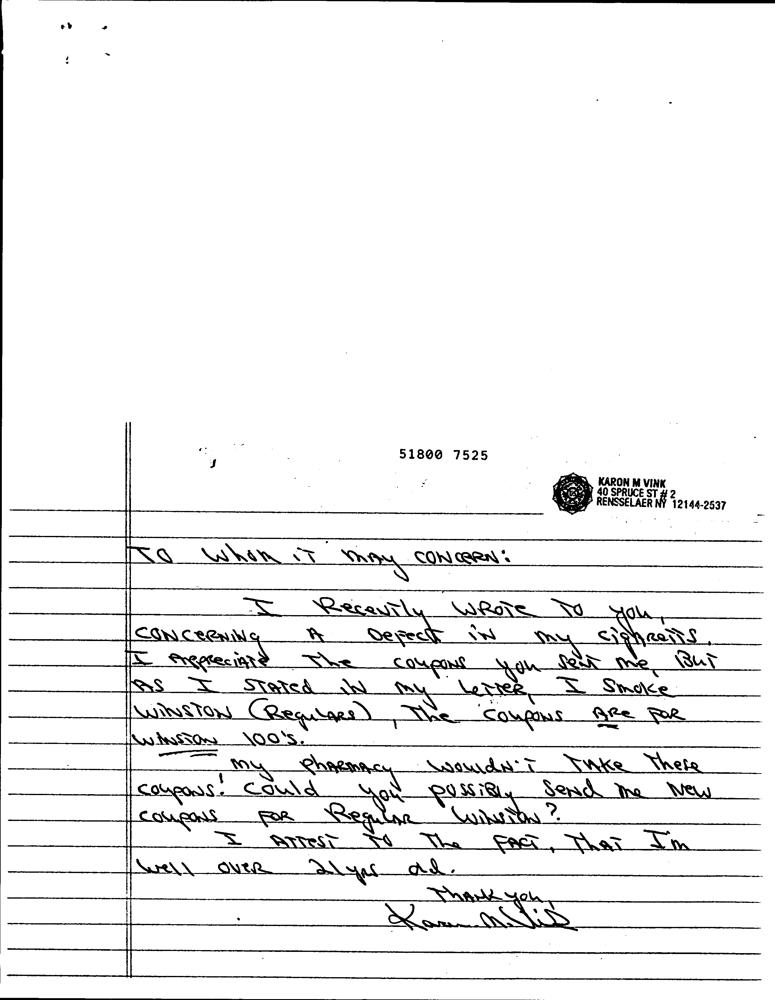 51800 7525
KARON M VINK
40 SPRUCE ST # 2
RENSSELAER NY 12144-2537
To Whom iT may concern:
I Recently wrote To you,
concerning A Defect in my cigareits.
I Appreciate The coupons you sent me, But
AS I STATed iN my LeTTer, I Smoke
WINSTON (Regulars), The coupons Are For
Winston 100's.
my pharmacy wouldn't Take These
coupons! Could you possibly Send me New
coupons For Regular Winston?
I ATTesT To The FACT, ThaT I'm
well over 21 yrs old.
Thank you,
Karon M. Vink